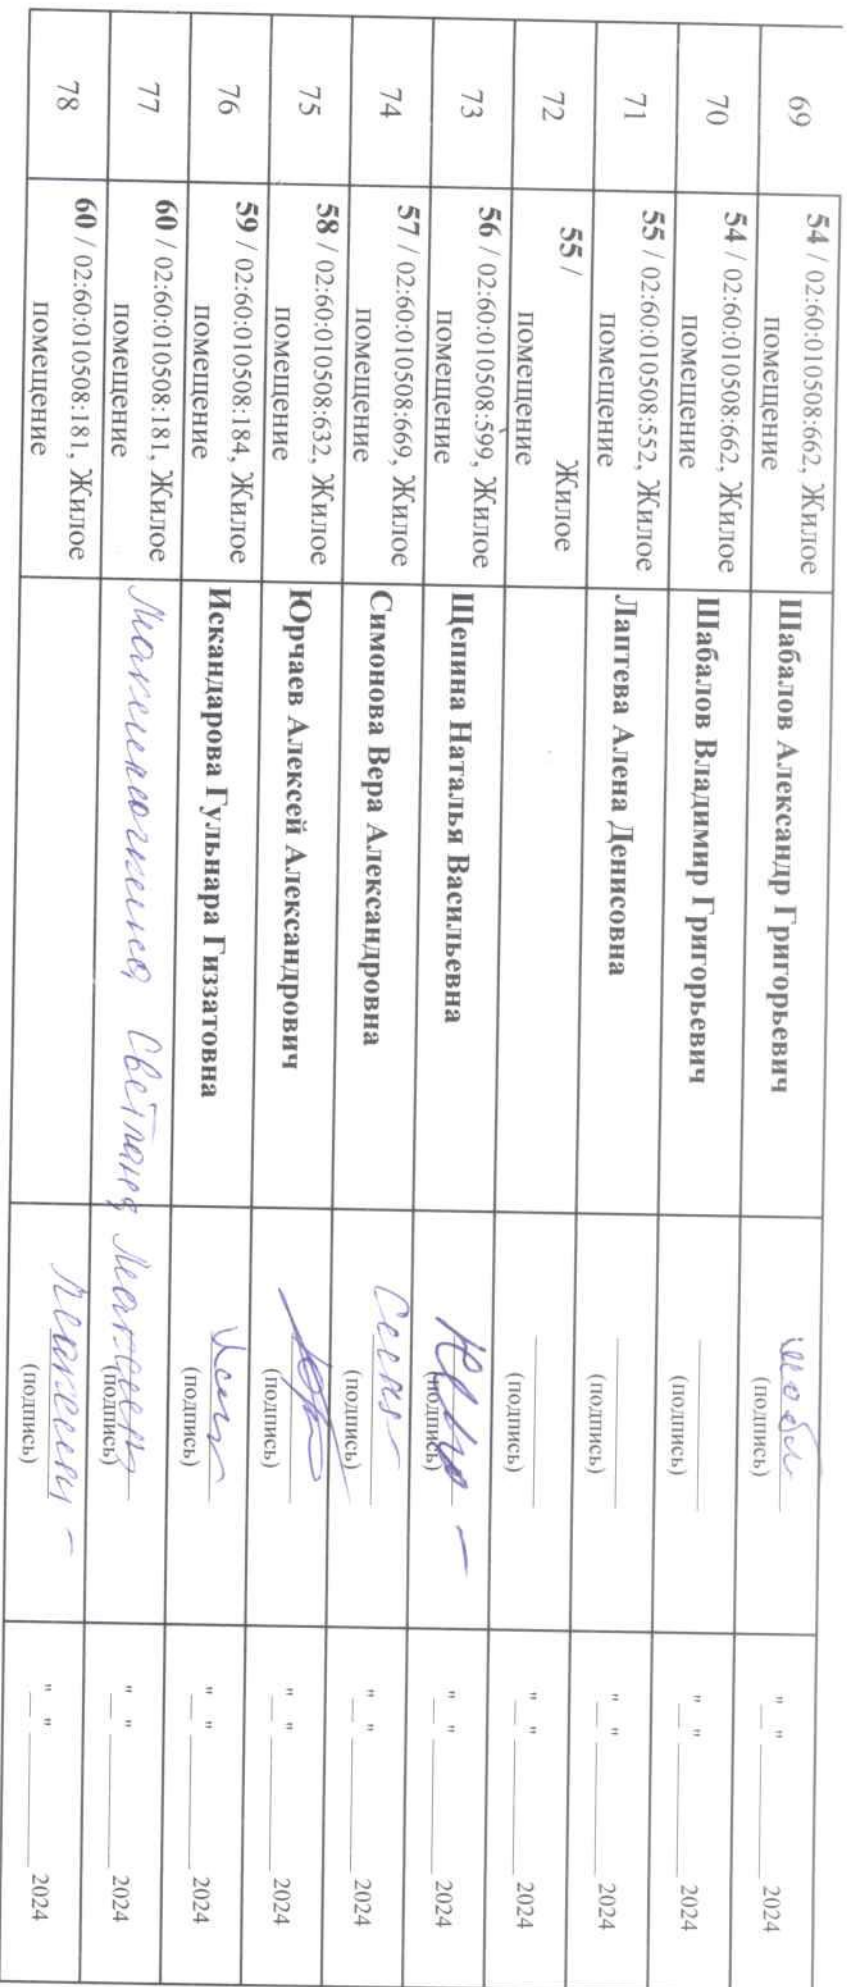 69
54 / 02:60:010508:662, Жилое
помещение
Шабалов Александр Григорьевич
(подпись)
"__" ________ 2024
70
54 / 02:60:010508:662, Жилое
помещение
Шабалов Владимир Григорьевич
(подпись)
"__" ________ 2024
71
55 / 02:60:010508:552, Жилое
помещение
Лаптева Алена Денисовна
(подпись)
"__" ________ 2024
72
55 / Жилое
помещение
(подпись)
"__" ________ 2024
73
56 / 02:60:010508:599, Жилое
помещение
Щепина Наталья Васильевна
(подпись)
"__" ________ 2024
74
57 / 02:60:010508:669, Жилое
помещение
Симонова Вера Александровна
(подпись)
"__" ________ 2024
75
58 / 02:60:010508:632, Жилое
помещение
Юрчаев Алексей Александрович
(подпись)
"__" ________ 2024
76
59 / 02:60:010508:184, Жилое
помещение
Искандарова Гульнара Гиззатовна
(подпись)
"__" ________ 2024
77
60 / 02:60:010508:181, Жилое
помещение
Светлана
(подпись)
"__" ________ 2024
78
60 / 02:60:010508:181, Жилое
помещение
(подпись)
"__" ________ 2024